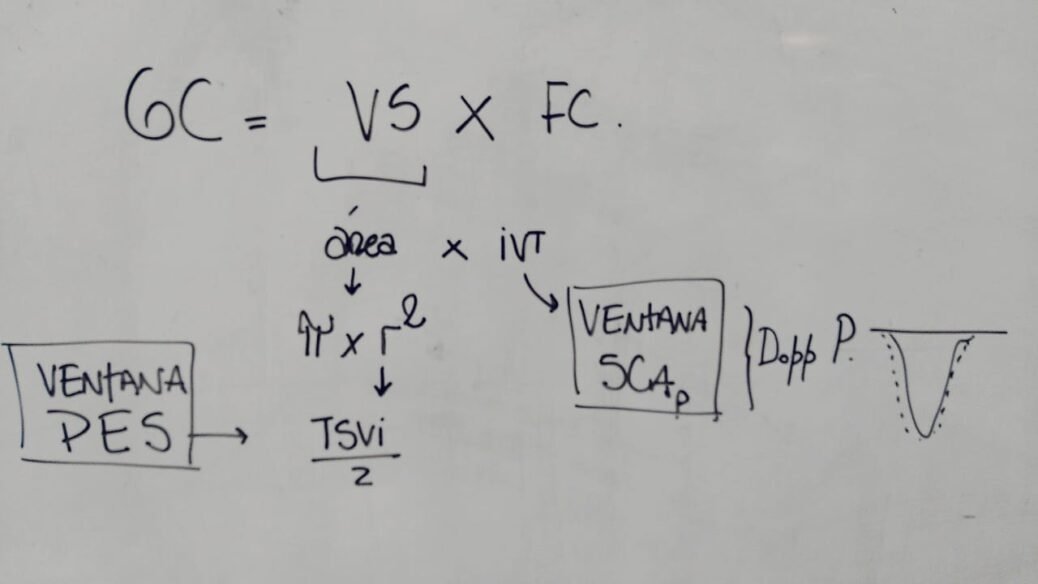 GC = VS x FC.
área x iVT
π x r²
VENTANA
PES
TSVi
2
VENTANA
5CAp
Dopp P.